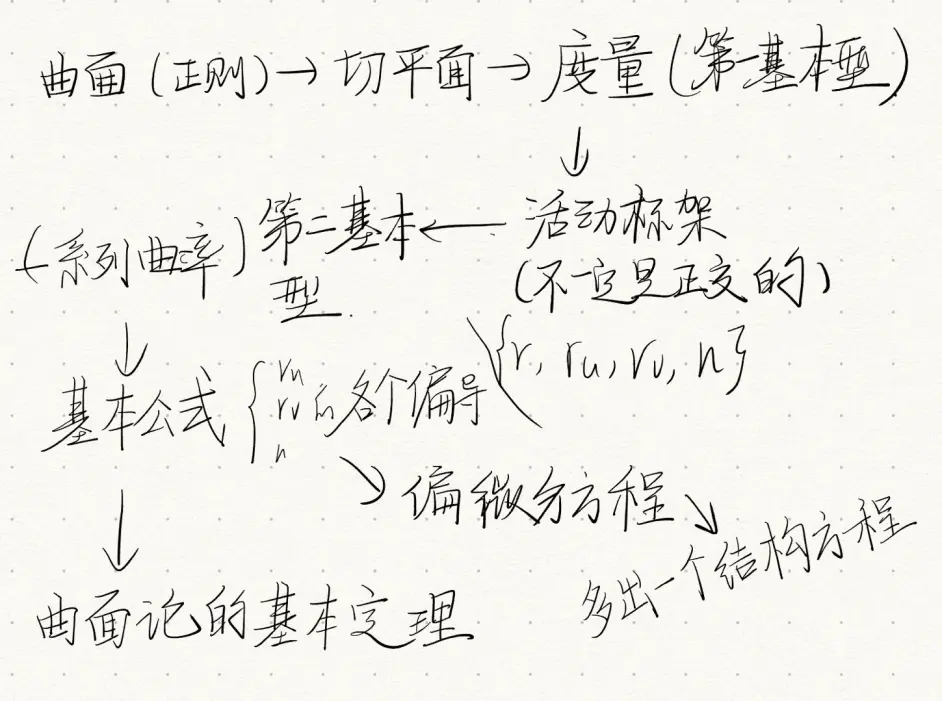 曲面(正则)→切平面→度量(第一基本型)
↓
(系列曲率)第二基本型 ← 活动标架
(不一定是正交的)
{r, ru, rv, n}
↓
基本公式 { ru rv n 的各个偏导
↘ 偏微分方程 ↘
↓
多出一个结构方程
曲面论的基本定理